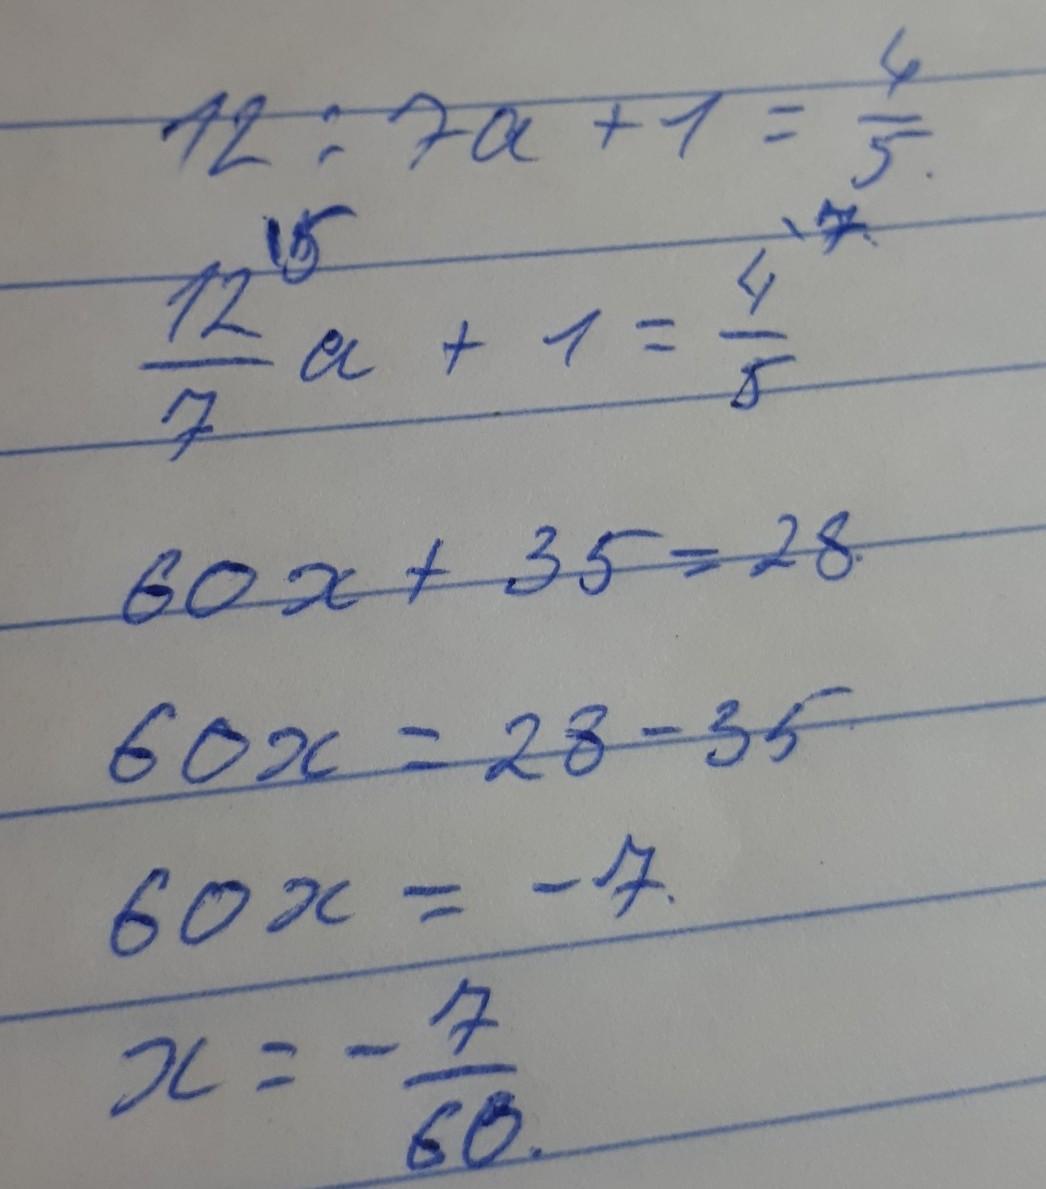 12 : 7a + 1 = 4/5.
12/7 \5 a + 1 = 4/5 \7.
60x + 35 = 28.
60x = 28 - 35
60x = -7.
x = - 7/60.